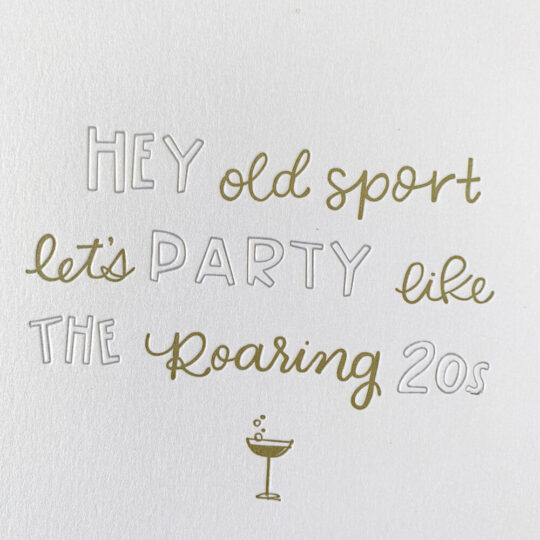 HEY old sport
let's PARTY like
THE Roaring 20s